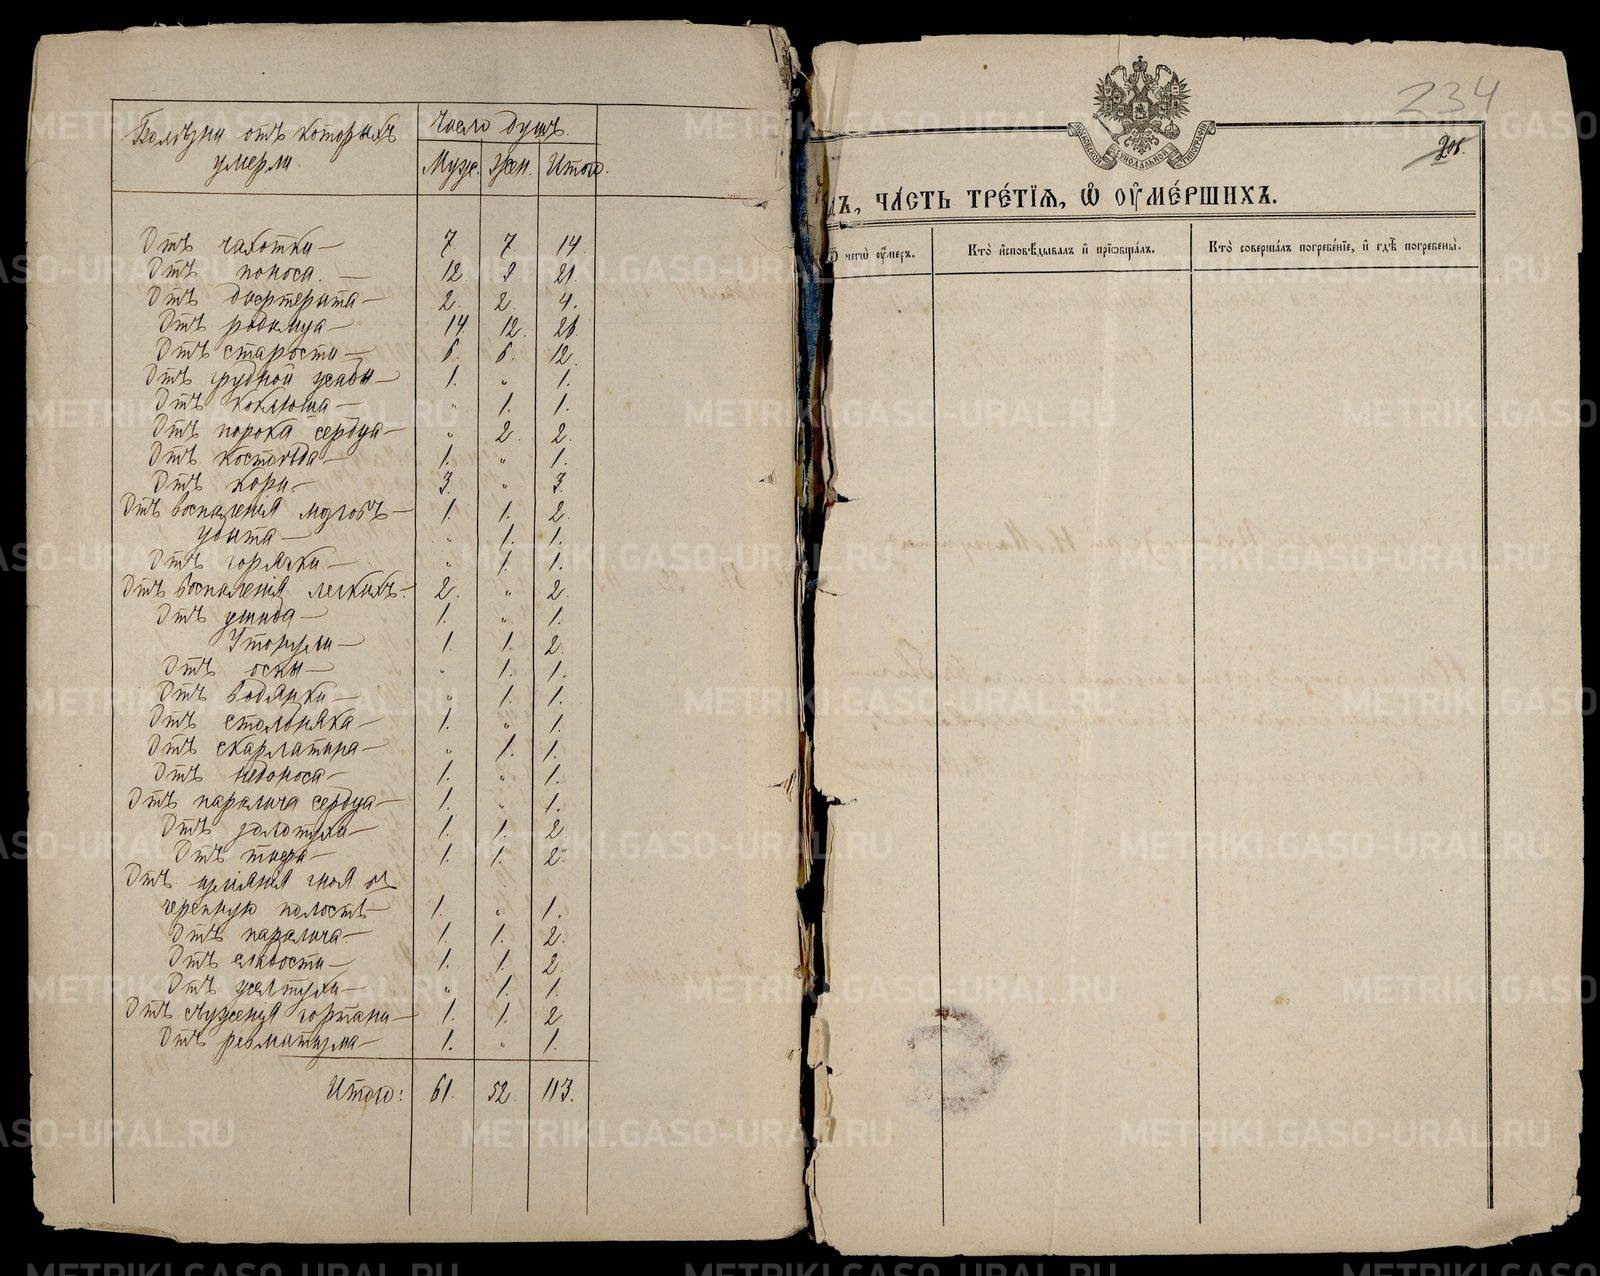 Болѣзни отъ которыхъ умерли.
Число душъ.
Муж. Жен. Итого.
Отъ чахотки — 7. 7. 14
Отъ поноса — 12. 9 21.
Отъ дифтерита — 2. 2. 4.
Отъ родимца — 14. 12. 26
Отъ старости — 6. 6. 12.
Отъ грудной жабы — 1. „ 1.
Отъ коклюша — „ 1. 1.
Отъ порока сердца — „ 2. 2.
Отъ костоѣда — 1. „ 1.
Отъ кори — 3. „ 3.
Отъ воспаленія мозговъ — 1. 1. 2.
Убита — „ 1. 1.
Отъ горячки — „ 1. 1.
Отъ воспаленія легкихъ — 2. „ 2.
Отъ ушиба — 1. „ 1.
Утонули — 1. 1. 2.
Отъ оспы — „ 1. 1.
Отъ водянки — „ 1. 1.
Отъ столбняка — 1. „ 1.
Отъ скарлатина — „ 1. 1.
Отъ недоноса — 1. „ 1.
Отъ паралича сердца — 1. „ 1.
Отъ золотухи — 1. 1. 2.
Отъ тифа — 1. 1. 2.
Отъ изліянія гноя въ
черепную полость 1. „ 1.
Отъ паралича — 1. 1. 2.
Отъ слабости — 1. 1. 2.
Отъ желтухи — „ 1. 1.
Отъ съуженія гортани — 1. 1. 2
Отъ ревматизма — 1. „ 1.
Итого: 61. 52. 113.
234
206.
МОСКОВСКОЙ СѴНОДАЛЬНОЙ ТИПОГРАФІИ
ДЪ, ЧА́СТЬ ТРЕ́ТІѦ, Ѡ҆ ОУ҆МЕ́РШИХЪ.
Ѿ чегѡ̀ оу҆́меръ.
Кто̀ и҆сповѣ́дывалъ и҆ прїѡбща́лъ.
Кто̀ соверша́лъ погребе́нїе, и҆ гдѣ̀ погребены̀.
METRIKI.GASO-URAL.RU